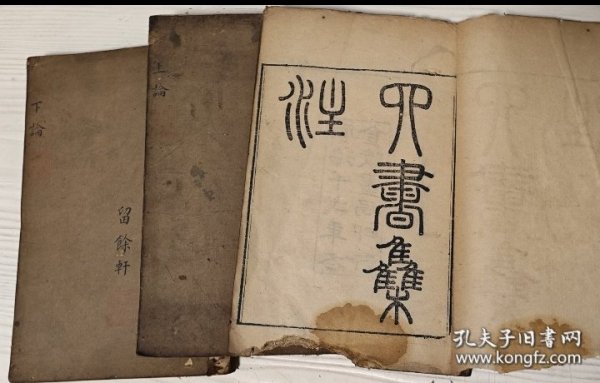 四書集
注
上論
下論
留餘軒
孔夫子旧书网
www.kongfz.com